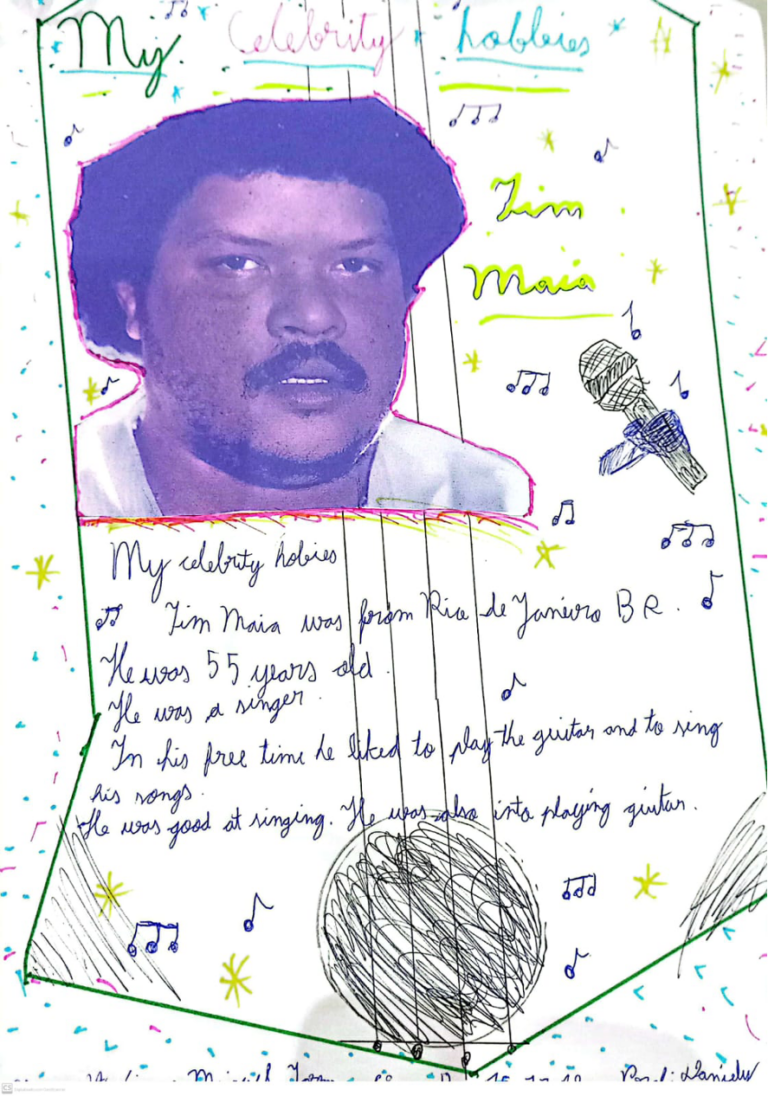 My Celebrity hobbies
Tim
Maia
My celebrity hobies
Tim Maia was from Rio de Janeiro BR.
He was 55 years old.
He was a singer.
In his free time he liked to play the guitar and to sing
his songs.
He was good at singing. He was also into playing guitar.